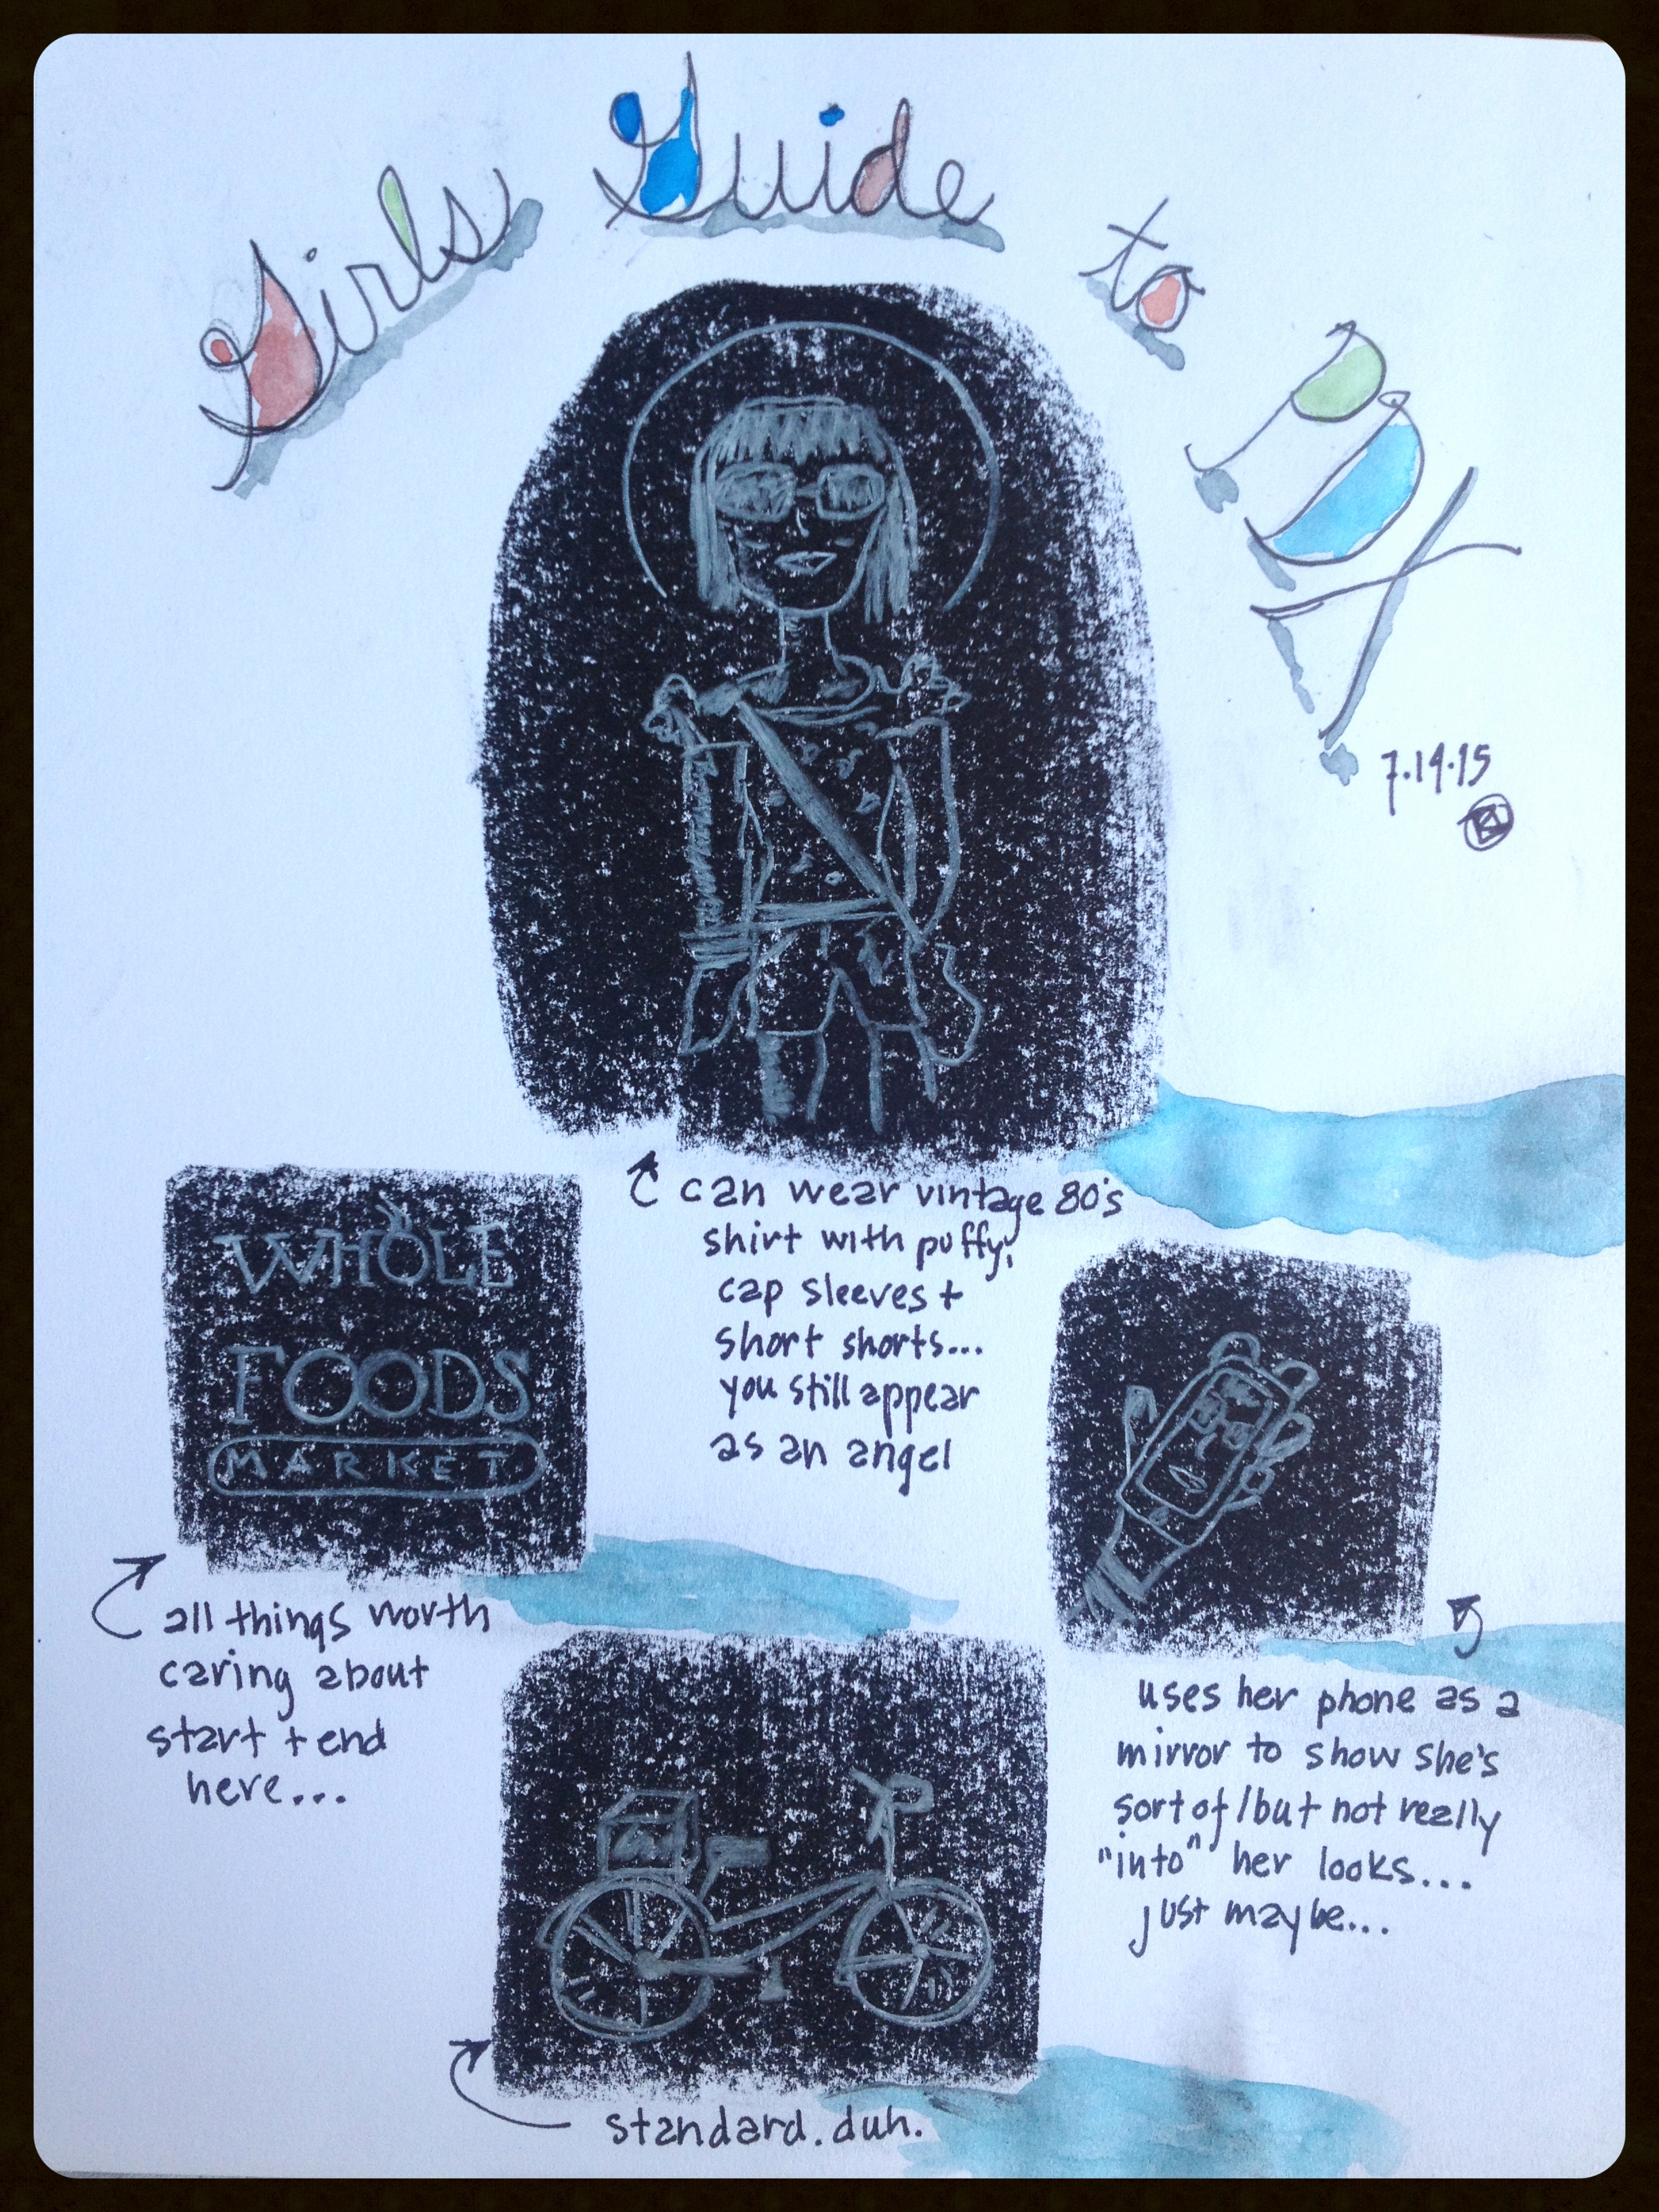 Girls Guide to PDX
7.14.15
can wear vintage 80's
shirt with puffy,
cap sleeves +
short shorts...
you still appear
as an angel
WHOLE
FOODS
MARKET
all things worth
caring about
start + end
here...
uses her phone as a
mirror to show she's
sort of/but not really
"into" her looks...
just maybe...
standard. duh.